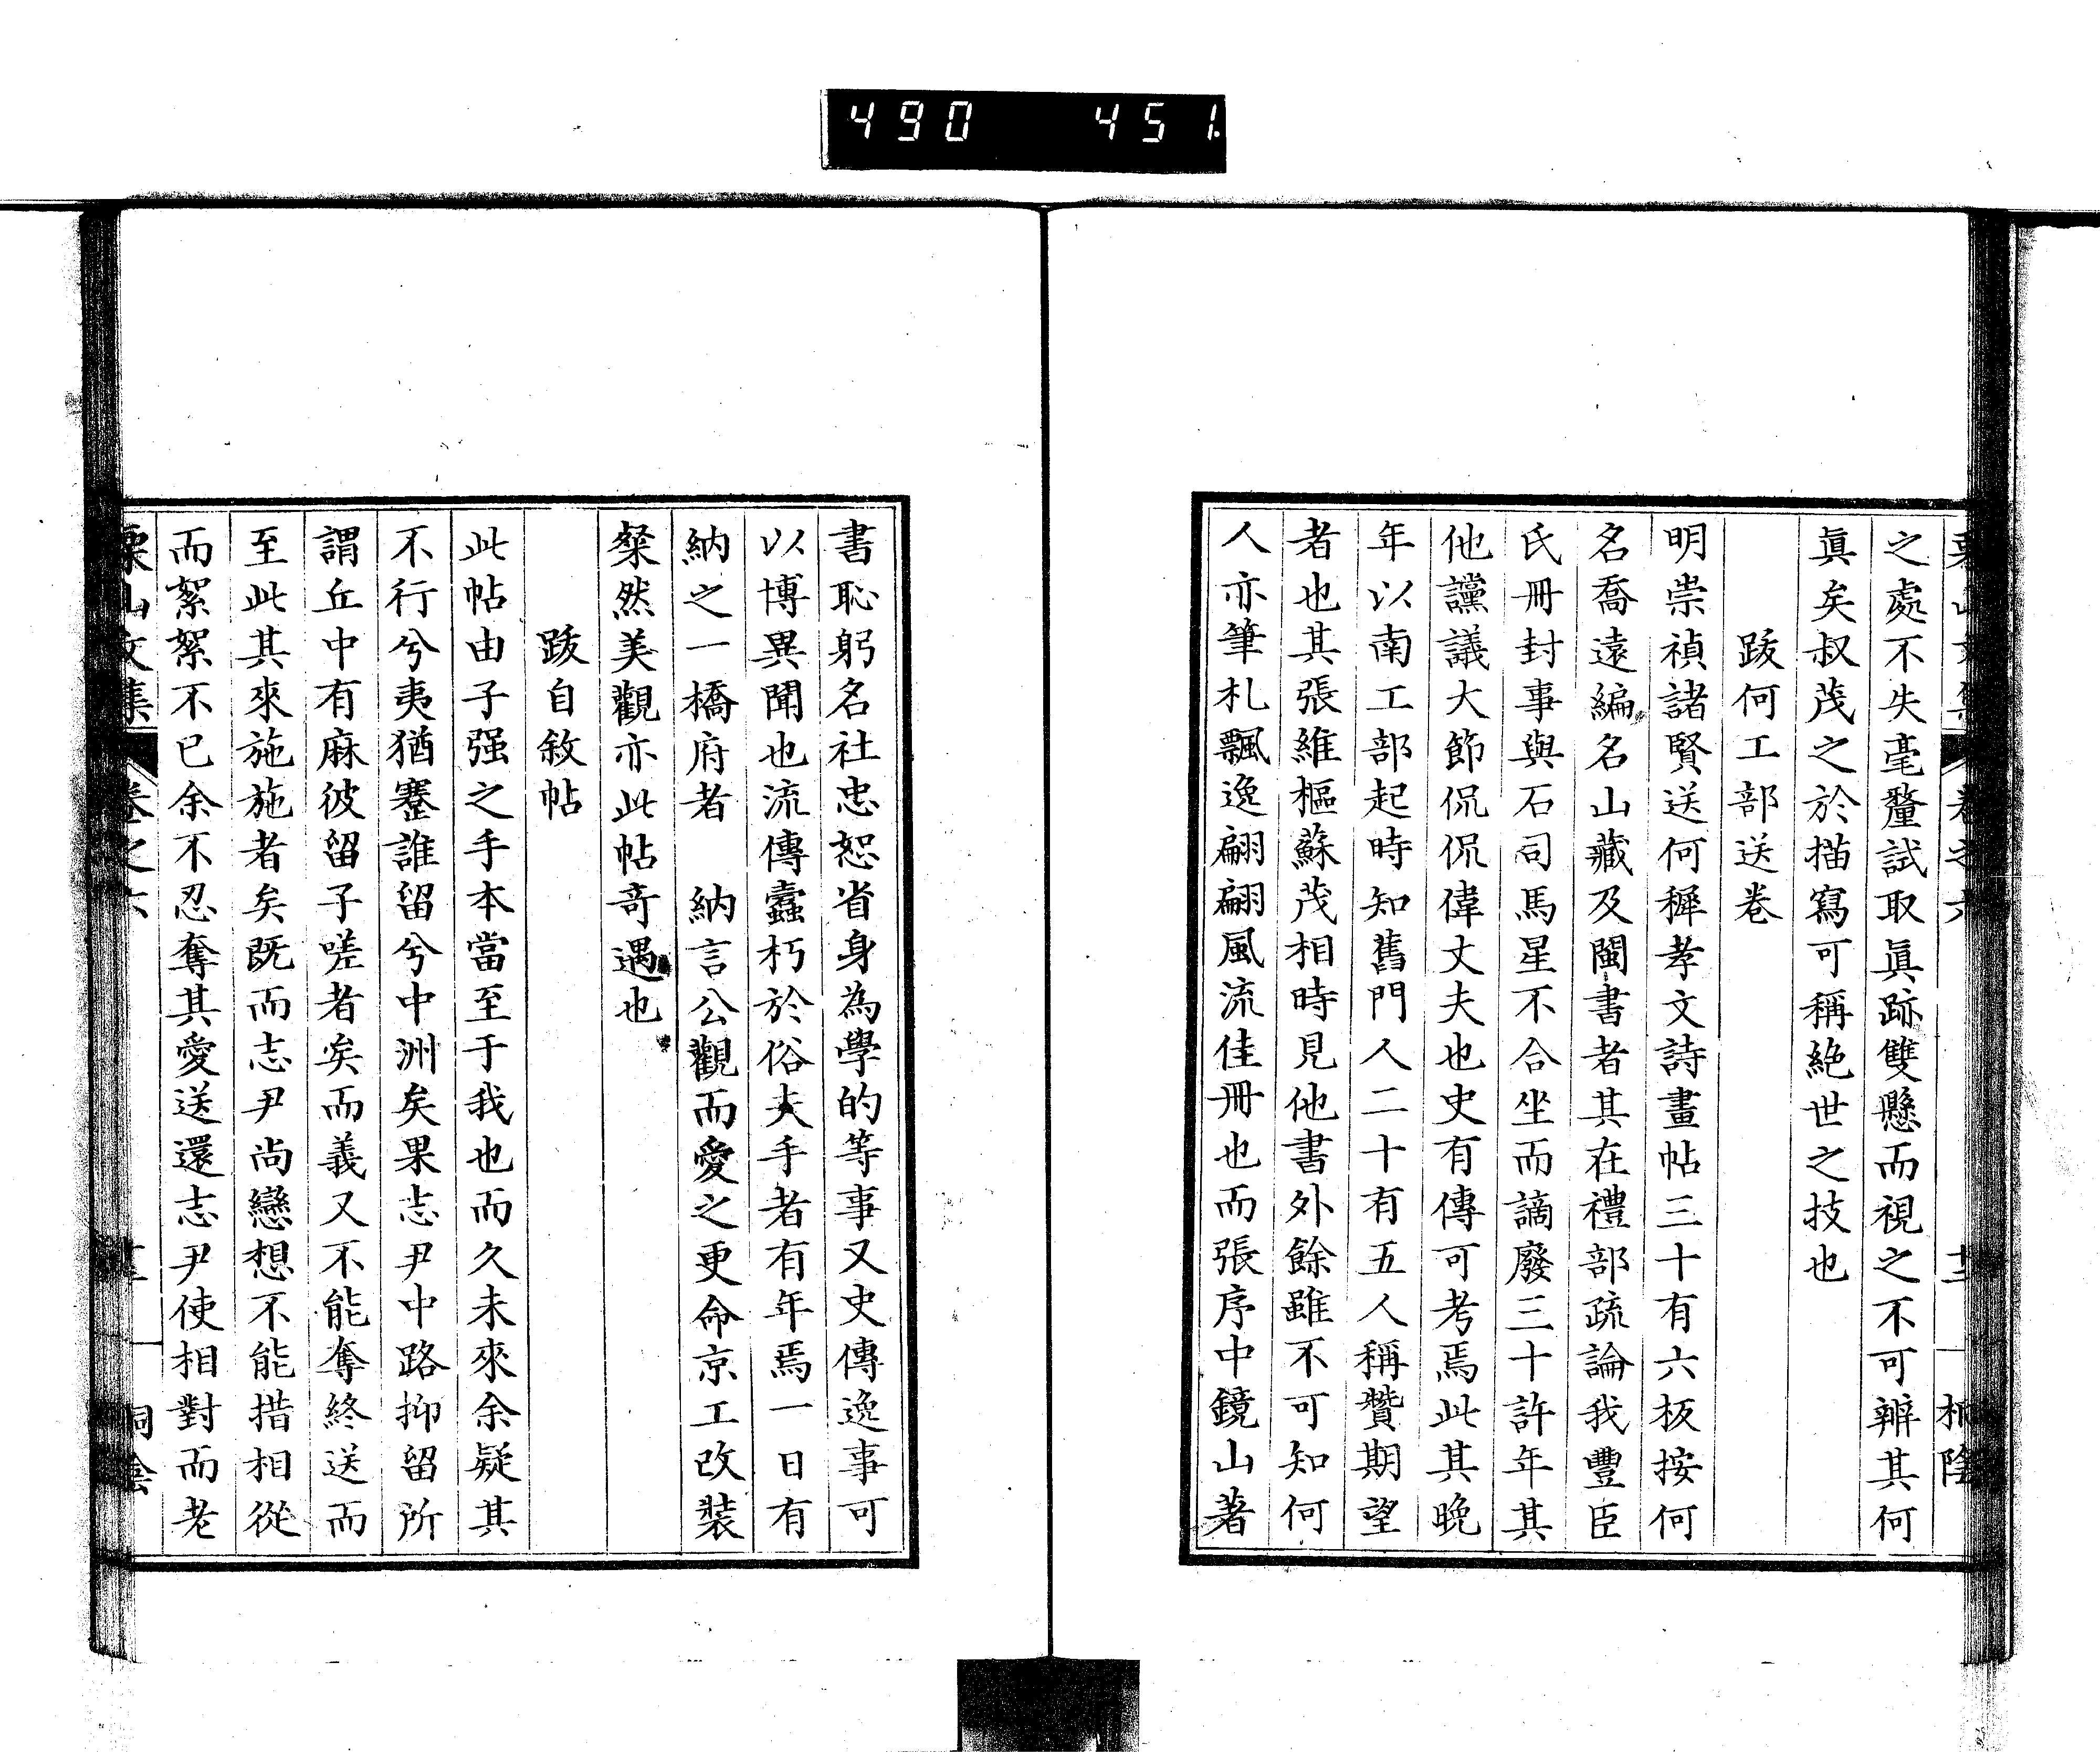 490 451.
之處不失毫釐試取眞跡雙懸而視之不可辨其何
眞矣叔茂之於描寫可稱絶世之技也
跋何工部送卷
明崇禎諸賢送何穉孝文詩畫帖三十有六板按何
名喬遠編名山藏及閩書者其在禮部疏論我豐臣
氏冊封事與石司馬星不合坐而謫廢三十許年其
他讜議大節侃侃偉丈夫也史有傳可考焉此其晚
年以南工部起時知舊門人二十有五人稱贊期望
者也其張維樞蘇茂相時見他書外餘雖不可知何
人亦筆札飄逸翩翩風流佳冊也而張序中鏡山著
書恥躬名社忠恕省身為學的等事又史傳逸事可
以博異聞也流傳蠹朽於俗夫手者有年焉一日有
納之一橋府者 納言公觀而愛之更命京工改裝
粲然美觀亦此帖奇遇也
跋自敘帖
此帖由子强之手本當至于我也而久未來余疑其
不行兮夷猶蹇誰留兮中洲矣果志尹中路抑留所
謂丘中有麻彼留子嗟者矣而義又不能奪終送而
至此其來施施者矣既而志尹尚戀想不能措相從
而絮絮不已余不忍奪其愛送還志尹使相對而老
栗山文集 卷之六